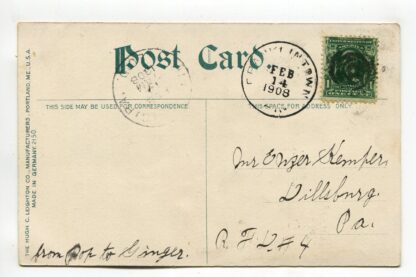 Post Card
FRANKLINTOWN
FEB
14
1908
THIS SIDE MAY BE USED FOR CORRESPONDENCE
THIS SIDE IS FOR THE ADDRESS
THE HUGH C. LEIGHTON CO., MANUFACTURERS, PORTLAND, ME., U.S.A.
MADE IN GERMANY 2150
Mr Kemper
Dillsburg.
Pa.
R F D # 4
from Pop to Ginger.